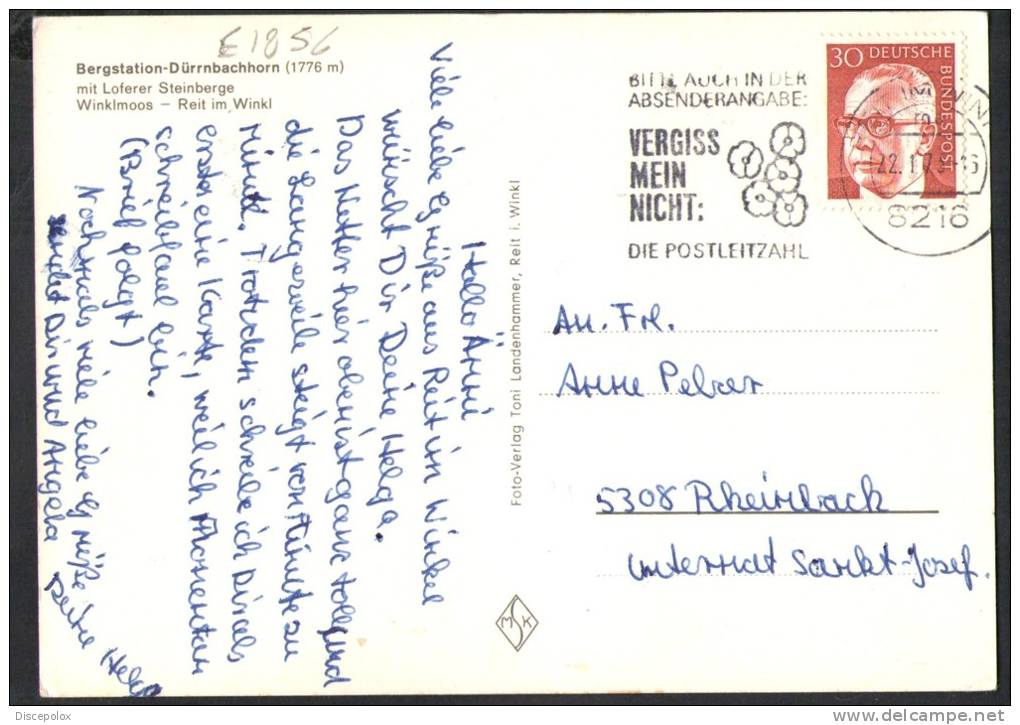 E1856
Bergstation-Dürrnbachhorn (1776 m)
mit Loferer Steinberge
Winklmoos – Reit im Winkl
Hallo Änni
Viele liebe Grüße aus Reit im Winkel
wünscht Dir Deine Helga.
Das Wetter hier oben ist ganz toll, und
die Langeweile steigt von Minute zu
Minute. Trotzdem schreibe ich Dir als
erste eine Karte, weil ich Momentan
schreibfaul bin.
(Brief folgt)
Nochmals viele liebe Grüße
sendet Dir und Angela Deine Helga
Foto-Verlag Toni Landenhammer, Reit i. Winkl
MSK
BITTE AUCH IN DER
ABSENDERANGABE:
VERGISS
MEIN
NICHT:
DIE POSTLEITZAHL
30 DEUTSCHE
BUNDESPOST
8216
An. Frl.
Anne Pelzer
5308 Rheinbach
Internat Sankt-Josef.
Discepolox
delcampe.net